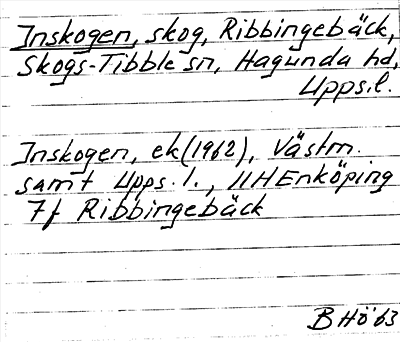 Inskogen, skog, Ribbingebäck,
Skogs-Tibble sn, Hagunda hd,
Upps.l.
Inskogen, ek (1962), Västm.
samt Upps. l., 11H Enköping
7f Ribbingebäck
B Hö 63